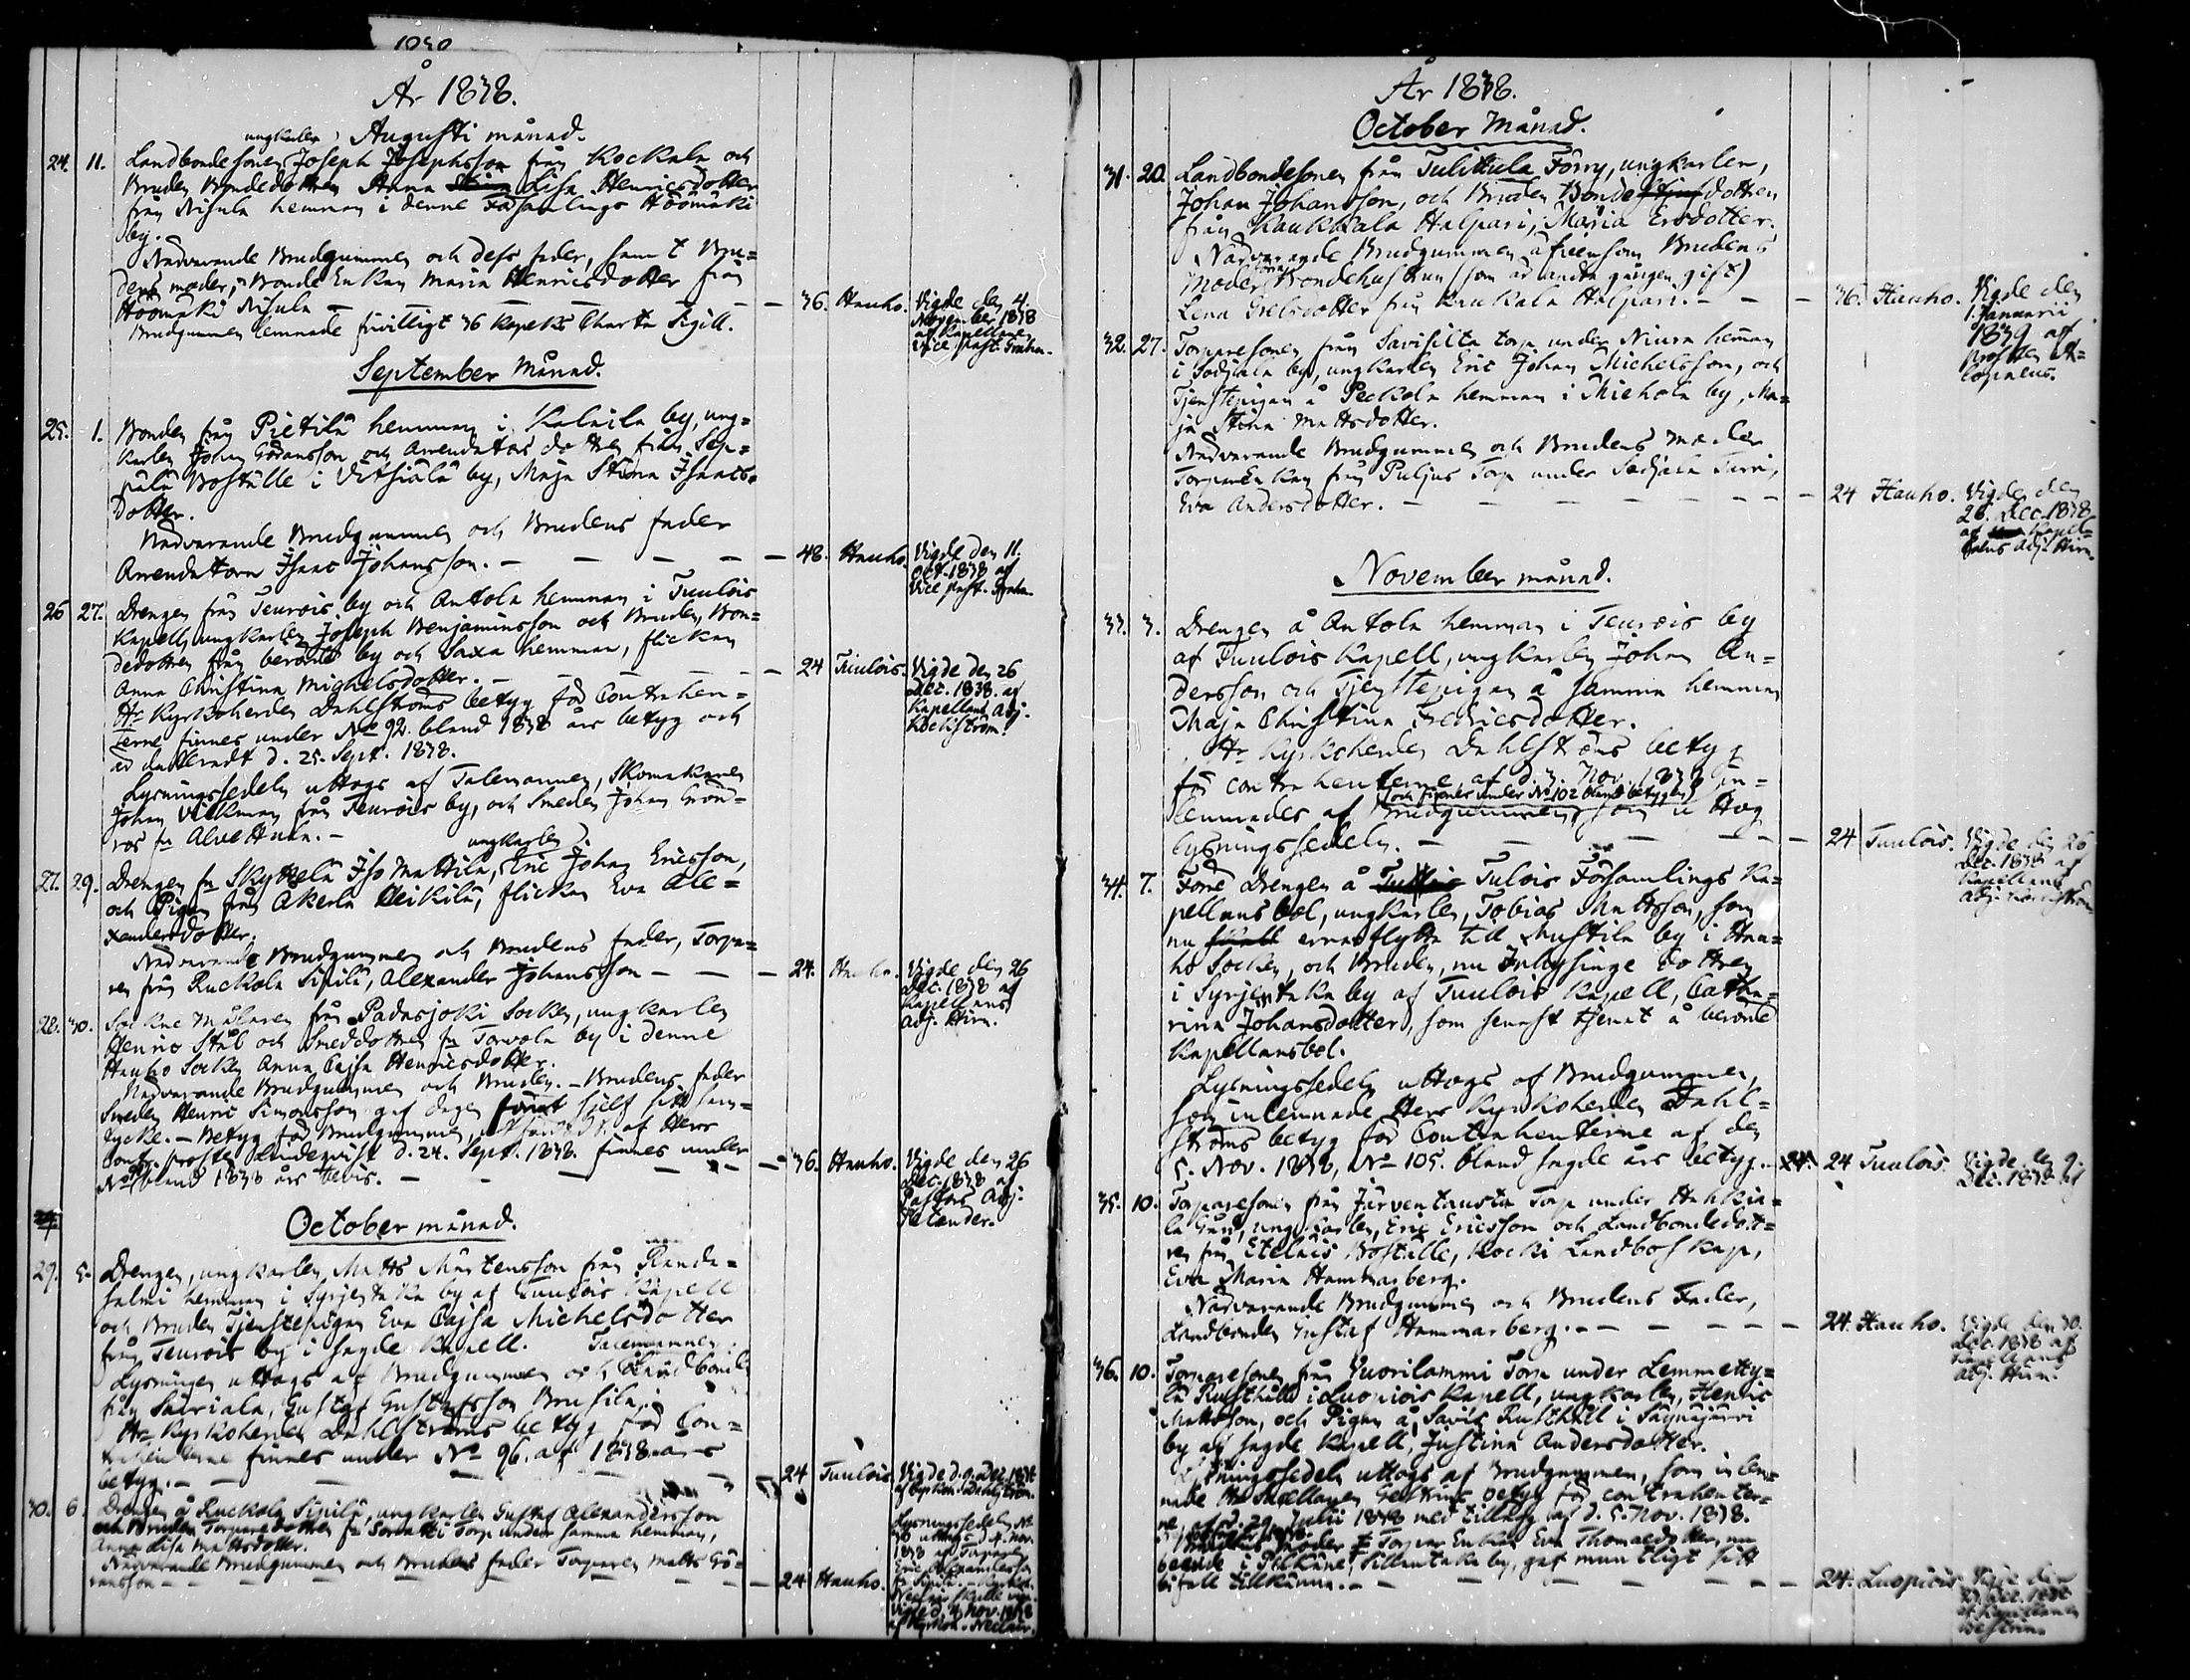 År 1838.
Augusti månad.
24. 11. Landbondesonen ungkarlen Joseph Josephsson från Kockala och
Bruden Bondedottren Anna Lisa Henricsdotter
från Nisula hemman i denne Församlings Höömäki
by.
Närvarande Brudgummen och dess fader, samt Bru=
dens moder, Bonde Enkan Maria Henricsdotter från
Höömäki Nisula — 36. Hauho. Vigde den 4.
November 1838
af Kapellanen
vice past.
Brudgummen lemnade frivilligt 36 kopek Charta Sigill.
September Månad.
25. 1. Bonden från Pietilä hemman i Kalaila by, ung=
karlen Johan Göransson och Arrendators dottren från Sep=
pälä Boställe i Vitsiälä by, Maja Stina Isaacs=
dotter.
Närvarande Brudgummen och Brudens fader
Arrendatorn Isaac Johansson. — 48. Hauho. Vigde den 11.
Oct. 1838 af
Vice past.
26 27. Drengen från Teurois by och Antola hemman i Tuulois
Kapell, ungkarlen Joseph Benjaminsson och Bruden, Bon=
dedottren från berörde by och Saxa hemman, flickan
Anna Christina Michelsdotter. — 24 Tuulois. Vigde den 26
Dec. 1838. af
Kapellans Adj.
Hr Kyrkoherden Dahlströms betyg för Contrahen=
terne finnes under No 92. bland 1838 års betyg och
är dateradt d. 25. Sept. 1838.
Lysningssedeln uttogs af Talemannen, Skomakaren
Johan Vikman från Teurois by, och Smeden Johan Grön=
ros fn Alvettula. —
27. 29. Drengen fn Skyttelä Iso Mattila, ungkarlen Eric Johan Ericsson,
och Pigan från Akerla Heikilä, flickan Eva Ale=
xandersdotter.
Närvarande Brudgummen och Brudens fader, Torpa=
ren från Ruckola Sipilä, Alexander Johansson — 24. Hauho. Vigde den 26
Dec. 1838 af
Kapellans
Adj. Hirn.
28. 30. Sockne Målaren från Padasjoki Socken, ungkarlen
Henric Stål och Smeddottren fn Torvola by i denne
Hauho Socken Anna Cajsa Henricsdotter.
Närvarande Brudgummen och Bruden. — Brudens fader
Smeden Henric Simonsson gaf dagen förut sjelf sitt sam=
tycke. — Betyg för Brudgummen, af Herr
Contr. prosten Lindeqvist d. 24. Sept. 1838. finnes under
No bland 1838 års bevis. — 36. Hauho. Vigde den 26
Dec. 1838 af
Pastors Adj.
Helander.
October månad.
29. 5. Drengen, ungkarlen Matts Mårtensson från Randa=
salmi hemman i Syrjentaka by af Tuulois Kapell
och Bruden Tjenstepigan Eva Cajsa Michelsdotter
från Teurois by i sagde Kapell.
Lysningen uttogs af Brudgummen och Talemannen Landbonden
från Sairiala, Gustaf Gustafsson Brusila.
Hr Kyrkoherden Dahlströms betyg för Con=
trahenterne finnes under No 96. af 1838 års
betyg. — 24 Tuulois. Vigde d. 9. Dec. 1838
30. 6. Drengen å Ruckola Sipilä, ungkarlen Gustaf Alexandersson
och Bruden Torparedottren fn Torp under samma hemman,
Anna Lisa Mattsdotter.
Närvarande Brudgummen och Brudens fader Torparen Matts Gö=
ransson — 24. Hauho.
Lysningssedeln
uttogs d. 4. Nov.
1838 af Torparen
Eric Alexandersson
fn Sipilä.
Vigde d. 4. Nov. 1838
År 1838.
October Månad.
31. 20. Landbondesonen från Tulittula Förry, ungkarlen,
Johan Johansson, och Bruden Bondedottren
från Kaukkala Halpari, Maria Ersdotter.
Närvarande Brudgummen äfvensom Brudens
Moder Bondehustrun (som är andra gången gift)
Lena Grelsdotter från Kaukala Halpari. — 36. Hauho. Vigde den
1. Januarii
1839 af
Prosten
32. 27. Torparesonen från Savisilta torp under Niura heman
i Sodjala by, ungkarlen Eric Johan Michelsson, och
Tjenstepigan å Peckola hemman i Miehola by, Ma=
ja Stina Mattsdotter.
Närvarande Brudgummen och Brudens moder
TorpareEnkan från Puljus Torp under Sodjala Turri,
Eva Andersdotter. — 24 Hauho. Vigde den
26. Dec. 1838
af Kapel=
lans Adj. Hirn.
November månad.
33. 3. Drengen å Antola hemman i Teurois by
af Tuulois Kapell, ungkarlen Johan An=
dersson och Tjenstepigan å samma hemman
Maja Christina Fredricsdotter.
Hr Kyrkoherden Dahlströms betyg
för contrahenterne af d. 3. Nov. 1838 in=
(och finnes under No 102 bland betygen)
lemnades af Brudgummen, som uttog
lysningssedeln. — 24 Tuulois. Vigde den 26
Dec. 1838 af
Kapellans
Adj.
34. 7. Förre Drengen å Tulois Församlings Ka=
pellansbol, ungkarlen, Tobias Mattsson, som
nu ernar flytta till Mustila by i Hau=
ho Socken, och Bruden, nu Inhysinge dottren
i Syrjentaka by af Tuulois Kapell, Catha=
rina Johansdotter, som senast tjenat å berörde
Kapellansbol.
Lysningssedeln uttogs af Brudgummen,
som inlemnade Herr Kyrkoherden Dahl=
ströms betyg för Contrahenterne af den
5. Nov. 1838, No 105. bland sagde års betyg. — 24 Tuulois. Vigde den 9.
Dec. 1838 af
35. 10. Torparesonen från Järventausta Torp under Hahkia=
la Gård, ungkarlen, Eric Ericsson och Landbondedott=
ren från Etelais Boställe, Kocki Landbolskap,
Eva Maria Hammarberg.
Närvarande Brudgummen och Brudens Fader,
Landbonden Gustaf Hammarberg. — 24. Hauho. Vigde den 30.
Dec. 1838 af
Kapellans
Adj. Hirn.
36. 10. Torparesonen från Vuorilammi Torp under Lemmetty=
lä Rusthåll i Luopiois Kapell, ungkarlen, Henric
Mattsson, och Pigan å Savis Rusthåll i Säynäjärvi
by af sagde Kapell, Justina Andersdotter.
Lysningssedeln uttogs af Brudgummen, som inlem=
nade Hr Kapellanen betyg för contrahenter=
ne af d. 29. Julii 1838 med tillägg af d. 5. Nov. 1838.
Brudens Moder Torpar Enkan Eva Thomasdotter, nu
boende i Pelkäne, Sillantaka by, gaf muntligt sitt
bifall tillkänna. — 24. Luopiois.